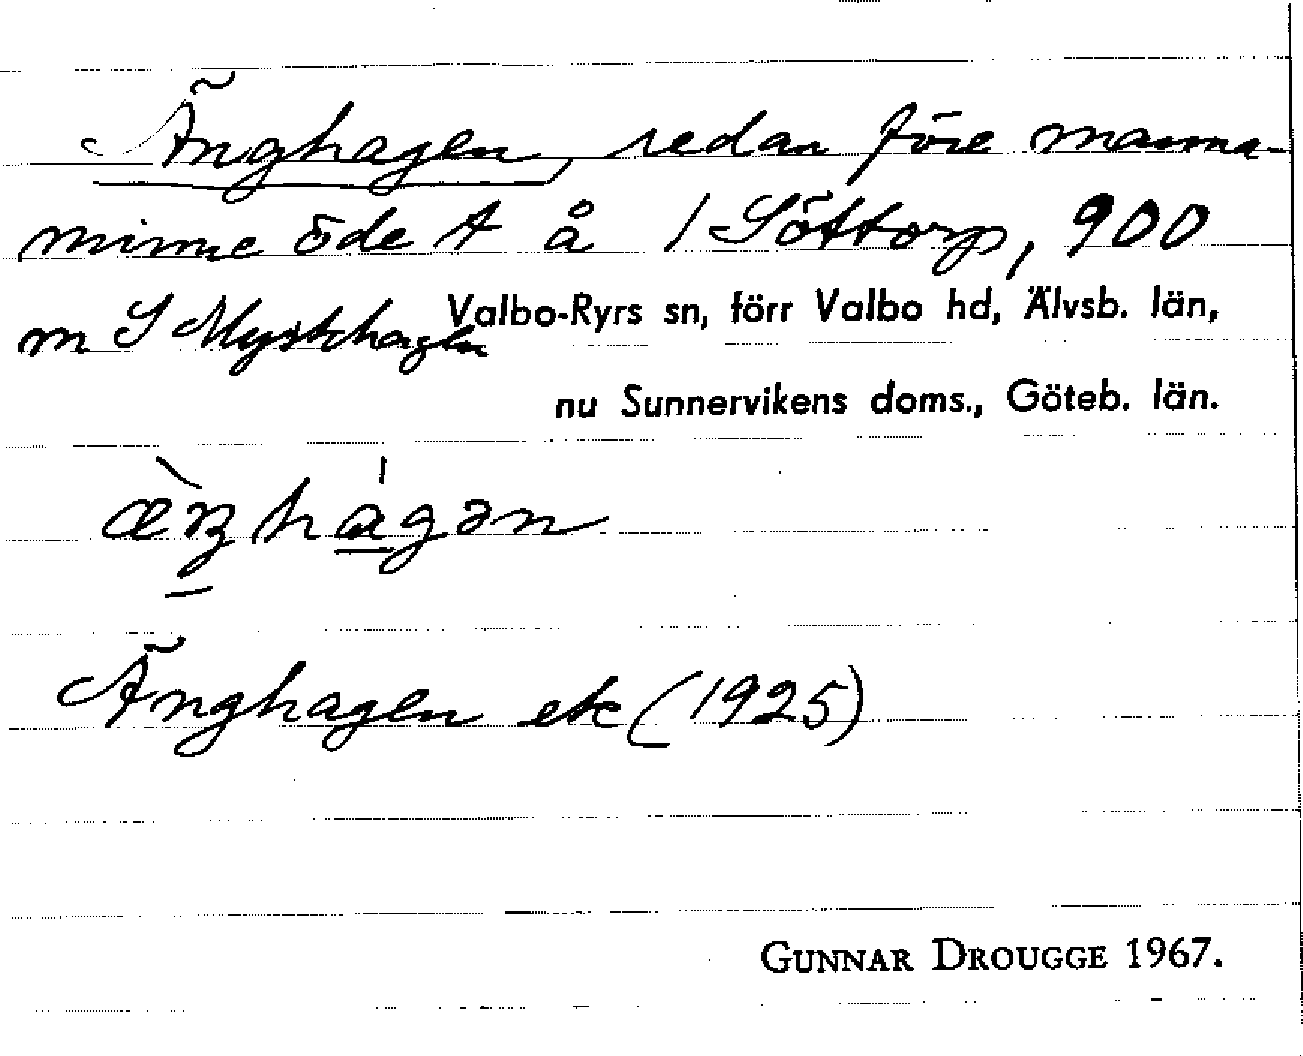 Änghagen, redan före manna-
minne öde t å 1 Söttorp, 900
m S Myskhagen Valbo-Ryrs sn, förr Valbo hd, Älvsb. län,
nu Sunnervikens doms., Göteb. län.
æ̀ŋhágən
Änghagen etc (1925)
GUNNAR DROUGGE 1967.